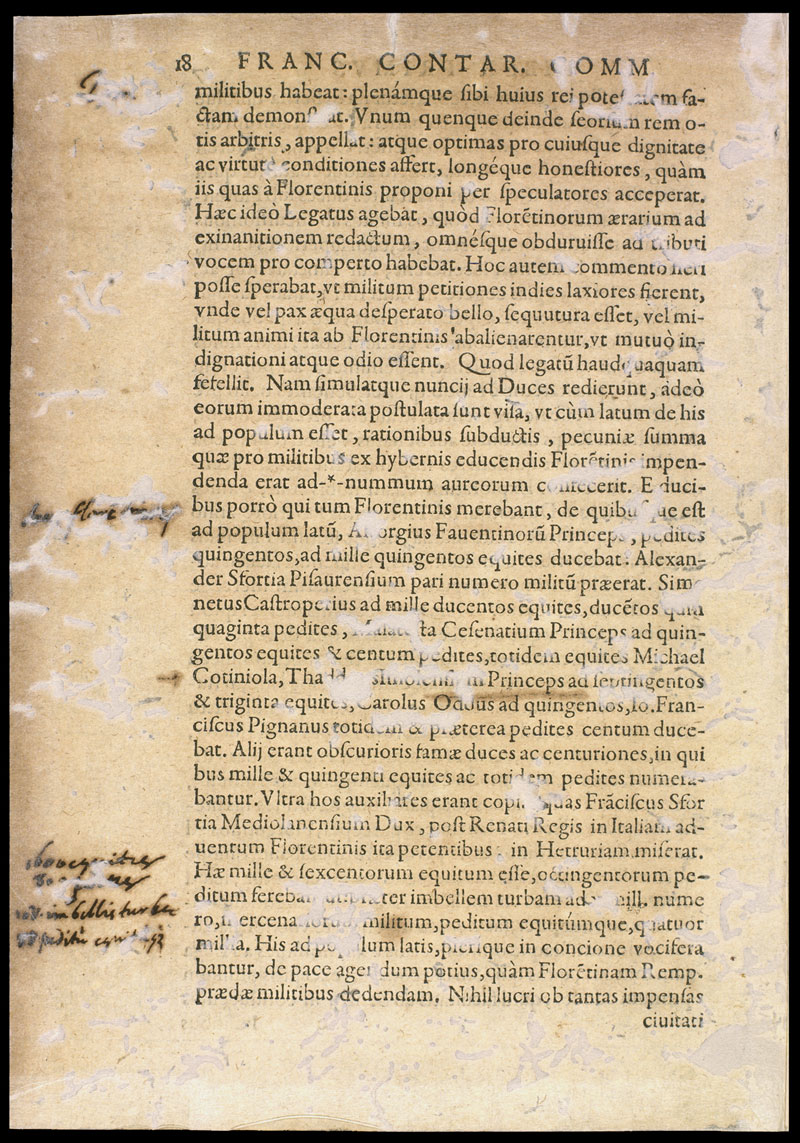 18 FRANC. CONTAR. COMM
militibus habeat: plenámque sibi huius rei fa-
ctam Vnum quenque deinde rem o-
tis arbitris, appellat: atque optimas pro cuiusque dignitate
ac conditiones affert, longéque honestiores, quàm
iis quas à Florentinis proponi per speculatores acceperat.
Hæc ideò Legatus agebat, quòd Florẽtinorum ærarium ad
exinanitionem redactum, omnésque obduruisse ad tributi
vocem pro comperto habebat. Hoc autem commento fieri
posse sperabat, vt militum petitiones indies laxiores fierent,
vnde vel pax æqua desperato bello, sequutura esset, vel mi-
litum animi ita ab Florentinis abalienarentur, vt mutuò in-
dignationi atque odio essent. Quod legatũ haudquaquam
fefellit. Nam simulatque nuncij ad Duces redierunt, adeò
eorum immoderata postulata sunt visa, vt cùm latum de his
ad populum esset, rationibus subductis, pecuniæ summa
quæ pro militibus ex hybernis educendis Florẽtinis impen-
denda erat ad-*-nummum aureorum E duci-
bus porrò qui tum Florentinis merebant, de est
ad populum latũ, Fauentinorũ Princeps, pedites
quingentos, ad mille quingentos equites ducebat: Alexan-
der Sfortia Pisaurensium pari numero militũ præerat. Sim
netus Castroperius ad mille ducentos equites, ducẽtos qua
quaginta pedites, Cesenatium Princeps ad quin-
gentos equites & centum pedites, totidem equites Michael
Cotiniola, Princeps ad septingentos
& triginta equites, Carolus Oddus ad quingentos, Io. Fran-
ciscus Pignanus totidem & præterea pedites centum duce-
bat. Alij erant obscurioris famæ duces ac centuriones, in qui
bus mille & quingenti equites ac totidem pedites numera-
bantur. Vltra hos auxiliares erant quas Frãciscus Sfor
tia Mediolanensium Dux, post Renati Regis in Italiam ad-
uentum Florentinis ita petentibus in Hetruriam miserat.
Hæ mille & sexcentorum equitum esse, octingentorum pe-
ditum imbellem turbam nume
ro, militum, peditum equitúmque, quatuor
millia. His ad populum latis, plerique in concione vocifera
bantur, de pace agendum potius, quàm Florẽtinam Remp.
prædæ militibus dedendam. Nihil lucri ob tantas impensas
ciuitati